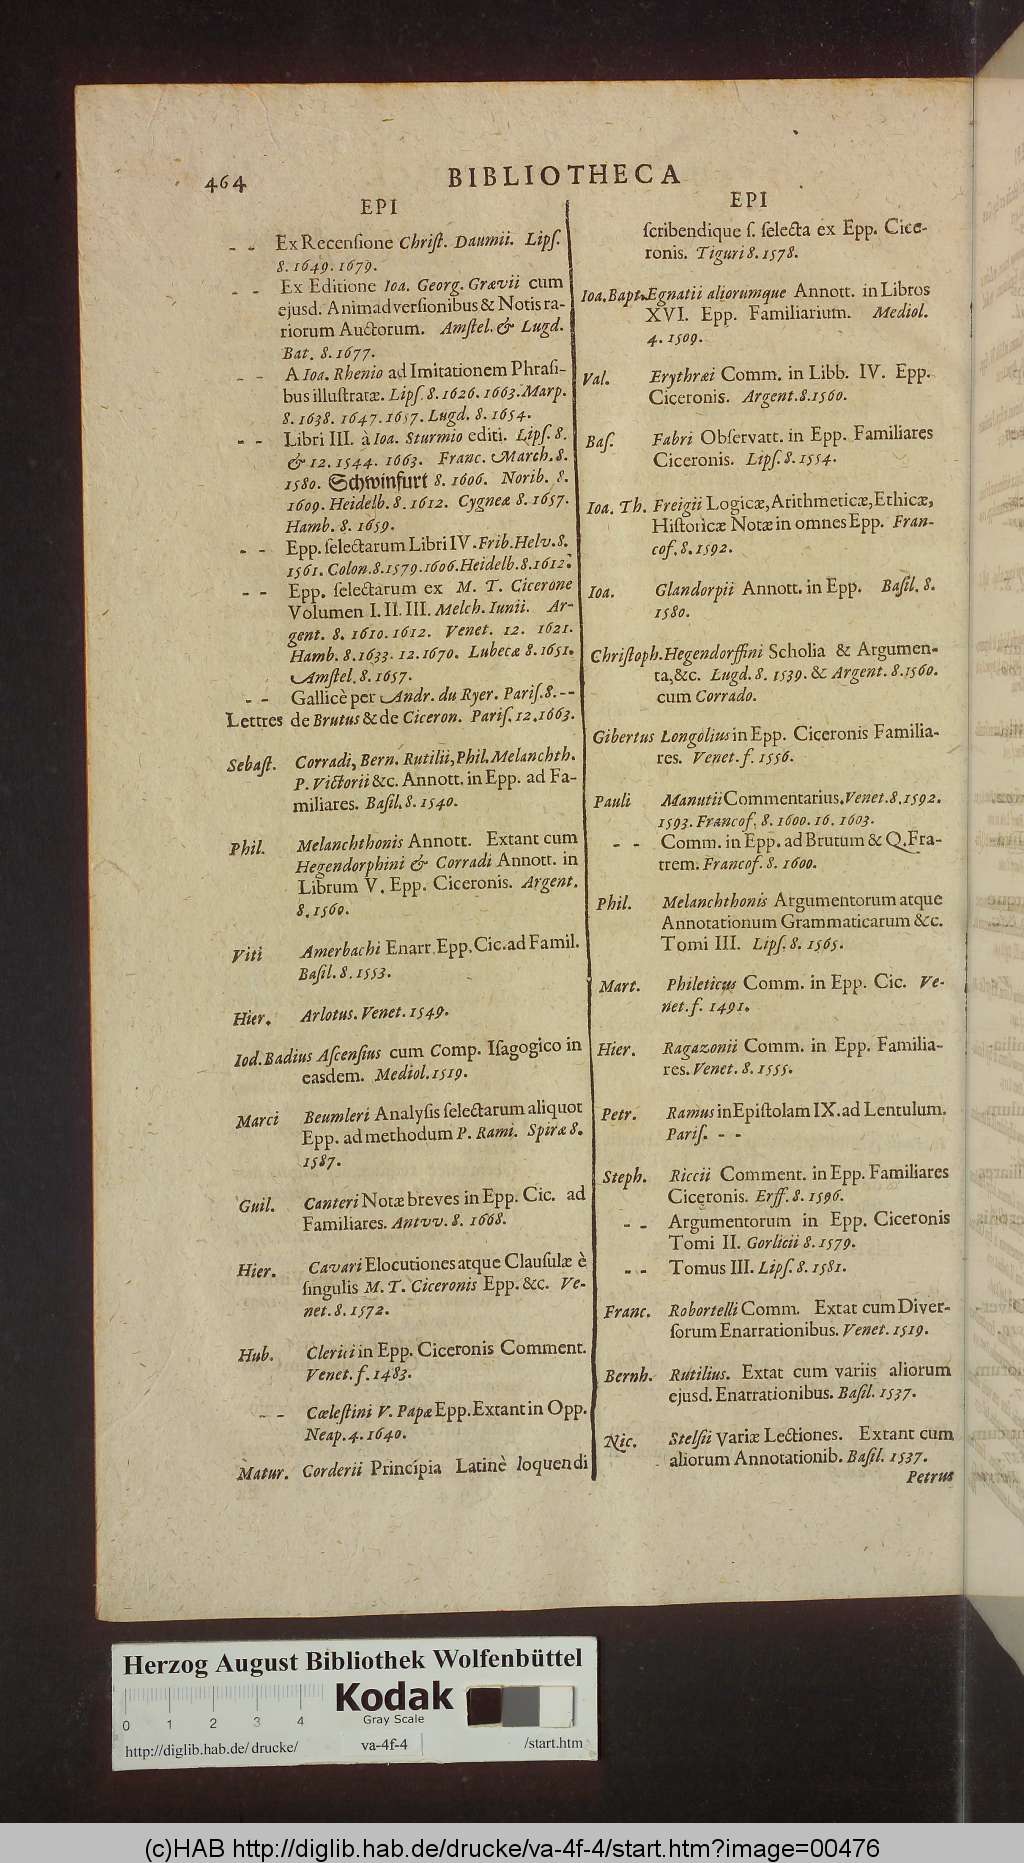 464 BIBLIOTHECA
EPI
- - Ex Recensione Christ. Daumii. Lips.
8. 1649. 1679.
- - Ex Editione Ioa. Georg. Grævii cum
ejusd. Animadversionibus & Notis va-
riorum Auctorum. Amstel. & Lugd.
Bat. 8. 1677.
- - A Ioa. Rhenio ad Imitationem Phrasi-
bus illustratæ. Lips. 8. 1626. 1663. Marp.
8. 1638. 1647. 1657. Lugd. 8. 1654.
- - Libri III. à Ioa. Sturmio editi. Lips. 8.
& 12. 1544. 1663. Franc. March. 8.
1580. Schwinfurt 8. 1606. Norib. 8.
1609. Heidelb. 8. 1612. Cygneæ 8. 1657.
Hamb. 8. 1659.
- - Epp. selectarum Libri IV. Frib. Helv. 8.
1561. Colon. 8. 1579. 1606. Heidelb. 8. 1612.
- - Epp. selectarum ex M. T. Cicerone
Volumen I. II. III. Melch. Iunii. Ar-
gent. 8. 1610. 1612. Venet. 12. 1621.
Hamb. 8. 1633. 12. 1670. Lubecæ 8. 1651.
Amstel. 8. 1657.
- - Gallicè per Andr. du Ryer. Paris. 8. --
Lettres de Brutus & de Ciceron. Paris. 12. 1663.
Sebast. Corradi, Bern. Rutilii, Phil. Melanchth.
P. Victorii &c. Annott. in Epp. ad Fa-
miliares. Basil. 8. 1540.
Phil. Melanchthonis Annott. Extant cum
Hegendorphini & Corradi Annott. in
Librum V. Epp. Ciceronis. Argent.
8. 1560.
Viti Amerbachi Enarr. Epp. Cic. ad Famil.
Basil. 8. 1553.
Hier. Arlotus. Venet. 1549.
Iod. Badius Ascensius cum Comp. Isagogico in
easdem. Mediol. 1519.
Marci Beumleri Analysis selectarum aliquot
Epp. ad methodum P. Rami. Spiræ 8.
1587.
Guil. Canteri Notæ breves in Epp. Cic. ad
Familiares. Antvv. 8. 1668.
Hier. Cavari Elocutiones atque Clausulæ è
singulis M. T. Ciceronis Epp. &c. Ve-
net. 8. 1572.
Hub. Clerici in Epp. Ciceronis Comment.
Venet. f. 1483.
- - Cœlestini V. Papæ Epp. Extant in Opp.
Neap. 4. 1640.
Matur. Corderii Principia Latinè loquendi
EPI
scribendique s. selecta ex Epp. Cice-
ronis. Tiguri 8. 1578.
Ioa. Bapt. Egnatii aliorumque Annott. in Libros
XVI. Epp. Familiarium. Mediol.
4. 1509.
Val. Erythræi Comm. in Libb. IV. Epp.
Ciceronis. Argent. 8. 1560.
Bas. Fabri Observatt. in Epp. Familiares
Ciceronis. Lips. 8. 1554.
Ioa. Th. Freigii Logicæ, Arithmeticæ, Ethicæ,
Historicæ Notæ in omnes Epp. Fran-
cof. 8. 1592.
Ioa. Glandorpii Annott. in Epp. Basil. 8.
1580.
Christoph. Hegendorffini Scholia & Argumen-
ta, &c. Lugd. 8. 1539. & Argent. 8. 1560.
cum Corrado.
Gibertus Longolius in Epp. Ciceronis Familia-
res. Venet. f. 1556.
Pauli Manutii Commentarius. Venet. 8. 1592.
1593. Francof. 8. 1600. 16. 1603.
- - Comm. in Epp. ad Brutum & Q. Fra-
trem. Francof. 8. 1600.
Phil. Melanchthonis Argumentorum atque
Annotationum Grammaticarum &c.
Tomi III. Lips. 8. 1565.
Mart. Phileticus Comm. in Epp. Cic. Ve-
net. f. 1491.
Hier. Ragazonii Comm. in Epp. Familia-
res. Venet. 8. 1555.
Petr. Ramus in Epistolam IX. ad Lentulum.
Paris. - -
Steph. Riccii Comment. in Epp. Familiares
Ciceronis. Erff. 8. 1596.
- - Argumentorum in Epp. Ciceronis
Tomi II. Gorlicii 8. 1579.
- - Tomus III. Lips. 8. 1581.
Franc. Robortelli Comm. Extat cum Diver-
sorum Enarrationibus. Venet. 1519.
Bernh. Rutilius. Extat cum variis aliorum
ejusd. Enarrationibus. Basil. 1537.
Nic. Stelsii Variæ Lectiones. Extant cum
aliorum Annotationib. Basil. 1537.
Petrus
Herzog August Bibliothek Wolfenbüttel
Kodak
Gray Scale
0 1 2 3 4
http://diglib.hab.de/drucke/ va-4f-4 /start.htm
(c)HAB http://diglib.hab.de/drucke/va-4f-4/start.htm?image=00476